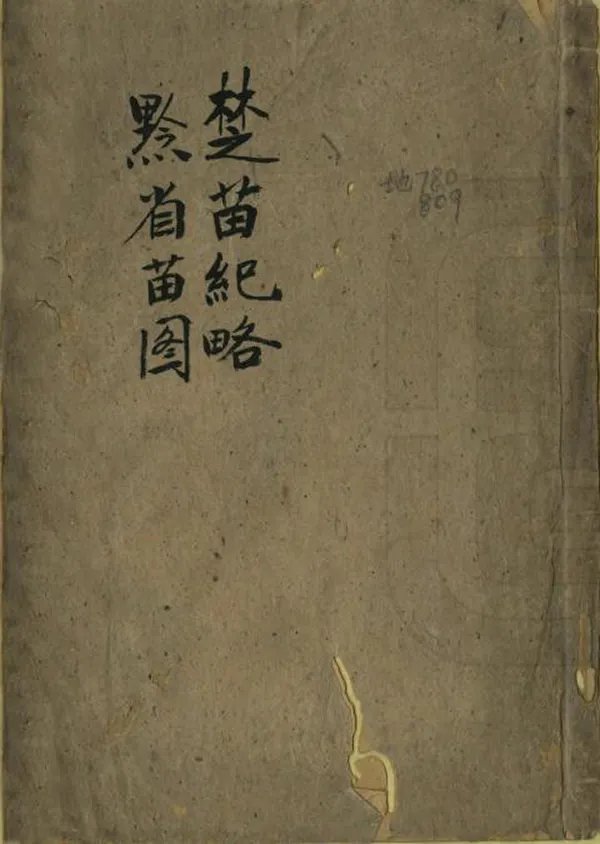 楚苗纪略
黔省苗图
地780
809